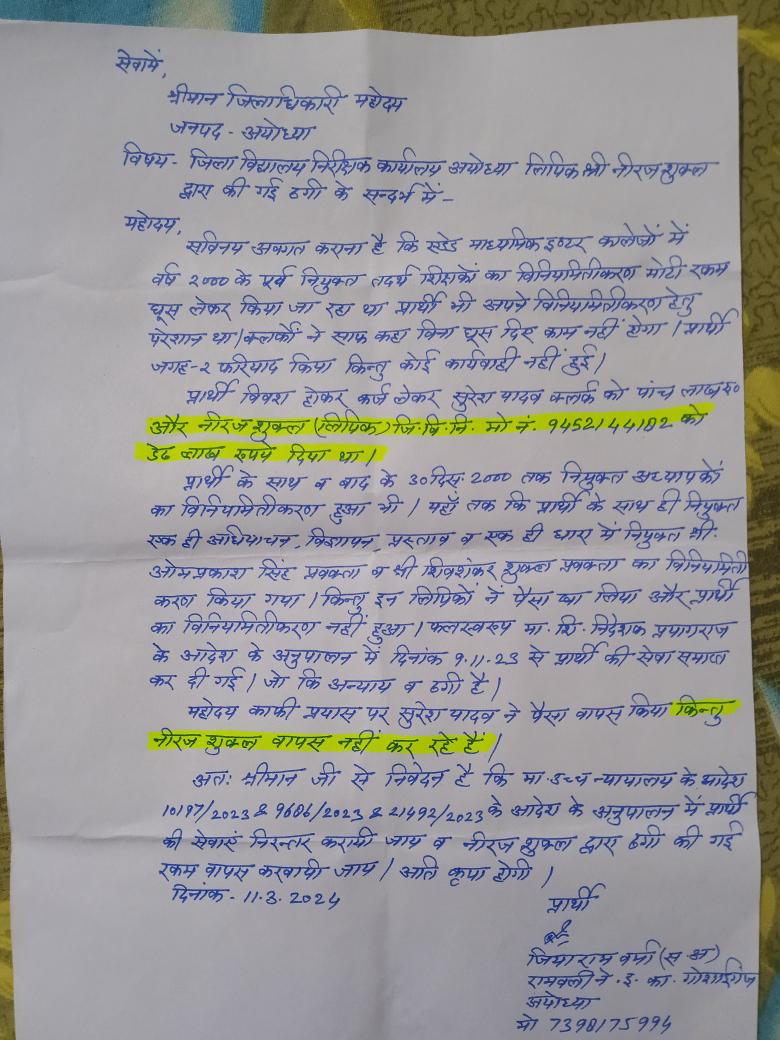 सेवामें,
श्रीमान जिलाधिकारी महोदय
जनपद - अयोध्या
विषय - जिला विद्यालय निरीक्षक कार्यालय अयोध्या लिपिक श्री नीरज शुक्ल
द्वारा की गई ठगी के सन्दर्भ में -
महोदय,
सविनय अवगत कराना है कि एडेड माध्यमिक इण्टर कालेजों में
वर्ष 2000 के पूर्व नियुक्त तदर्थ शिक्षकों का विनियामितीकरण मोटी रकम
घूस लेकर किया जा रहा था प्रार्थी भी अपने विनियामितीकरण हेतु
परेशान था। क्लर्कों ने साफ कहा बिना घूस दिए काम नहीं होगा। प्रार्थी
जगह-२ फरियाद किया किन्तु कोई कार्यवाही नहीं हुई।
प्रार्थी विवश होकर कर्ज लेकर सुरेश यादव क्लर्क को पांच लाख रु०
और नीरज शुक्ल (लिपिक) जि. वि. नि. मो नं. 9452144182 को
डेढ लाख रुपये दिया था।
प्रार्थी के साथ व बाद के 30 दिस. 2000 तक नियुक्त अध्यापकों
का विनियामितीकरण हुआ भी। यहाँ तक कि प्रार्थी के साथ ही नियुक्त
एक ही अधियाचन, विज्ञापन, प्रस्ताव व एक ही धारा में नियुक्त श्री.
ओमप्रकाश सिंह प्रवक्ता व श्री शिवशंकर शुक्ल प्रवक्ता का विनियामिती
करण किया गया। किन्तु इन लिपिकों नें पैसा खा लिया और प्रार्थी
का विनियामितीकरण नहीं हुआ। फलस्वरुप मा. शि. निदेशक प्रयागराज
के आदेश के अनुपालन में दिनांक 9.11.23 से प्रार्थी की सेवा समाप्त
कर दी गई। जो कि अन्याय व ठगी है।
महोदय काफी प्रयास पर सुरेश यादव ने पैसा वापस किया किन्तु
नीरज शुक्ल वापस नहीं कर रहे हैं।
अतः श्रीमान जी से निवेदन है कि मा. उच्च न्यायालय के आदेश
10197/2023 & 9686/2023 & 21492/2023 के आदेश के अनुपालन में प्रार्थी
की सेवाएं निरन्तर करायी जाय व नीरज शुक्ल द्वारा ठगी की गई
रकम वापस करवायी जाय। अति कृपा होगी।
दिनांक - 11.3.2024
प्रार्थी
जियाराम वर्मा (स.अ)
रामबली ने. इ. का. गोशाईगंज
अयोध्या
मो 7398175994